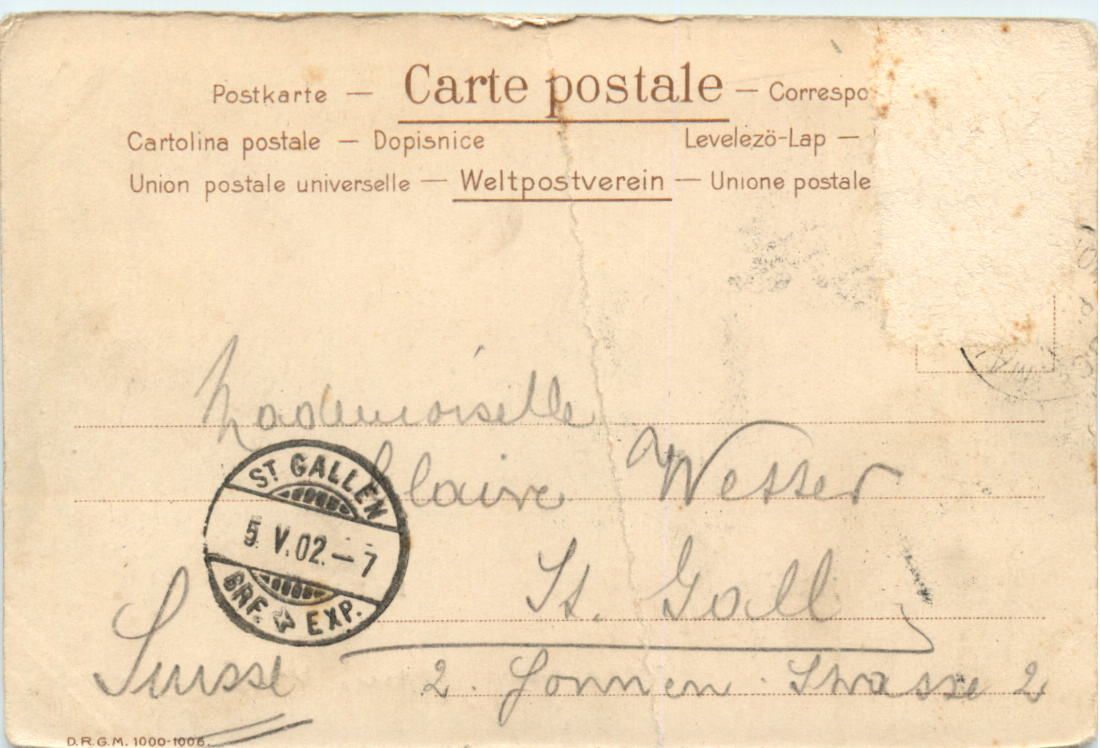 Postkarte — Carte postale — Correspo
Cartolina postale — Dopisnice Levelezö-Lap —
Union postale universelle — Weltpostverein — Unione postale
Mademoiselle
Claire Wetter
ST. GALLEN
5. V. 02. – 7
BRF. EXP.
St. Gall
Suisse 2. Strasse 2
D.R.G.M. 1000-1006.